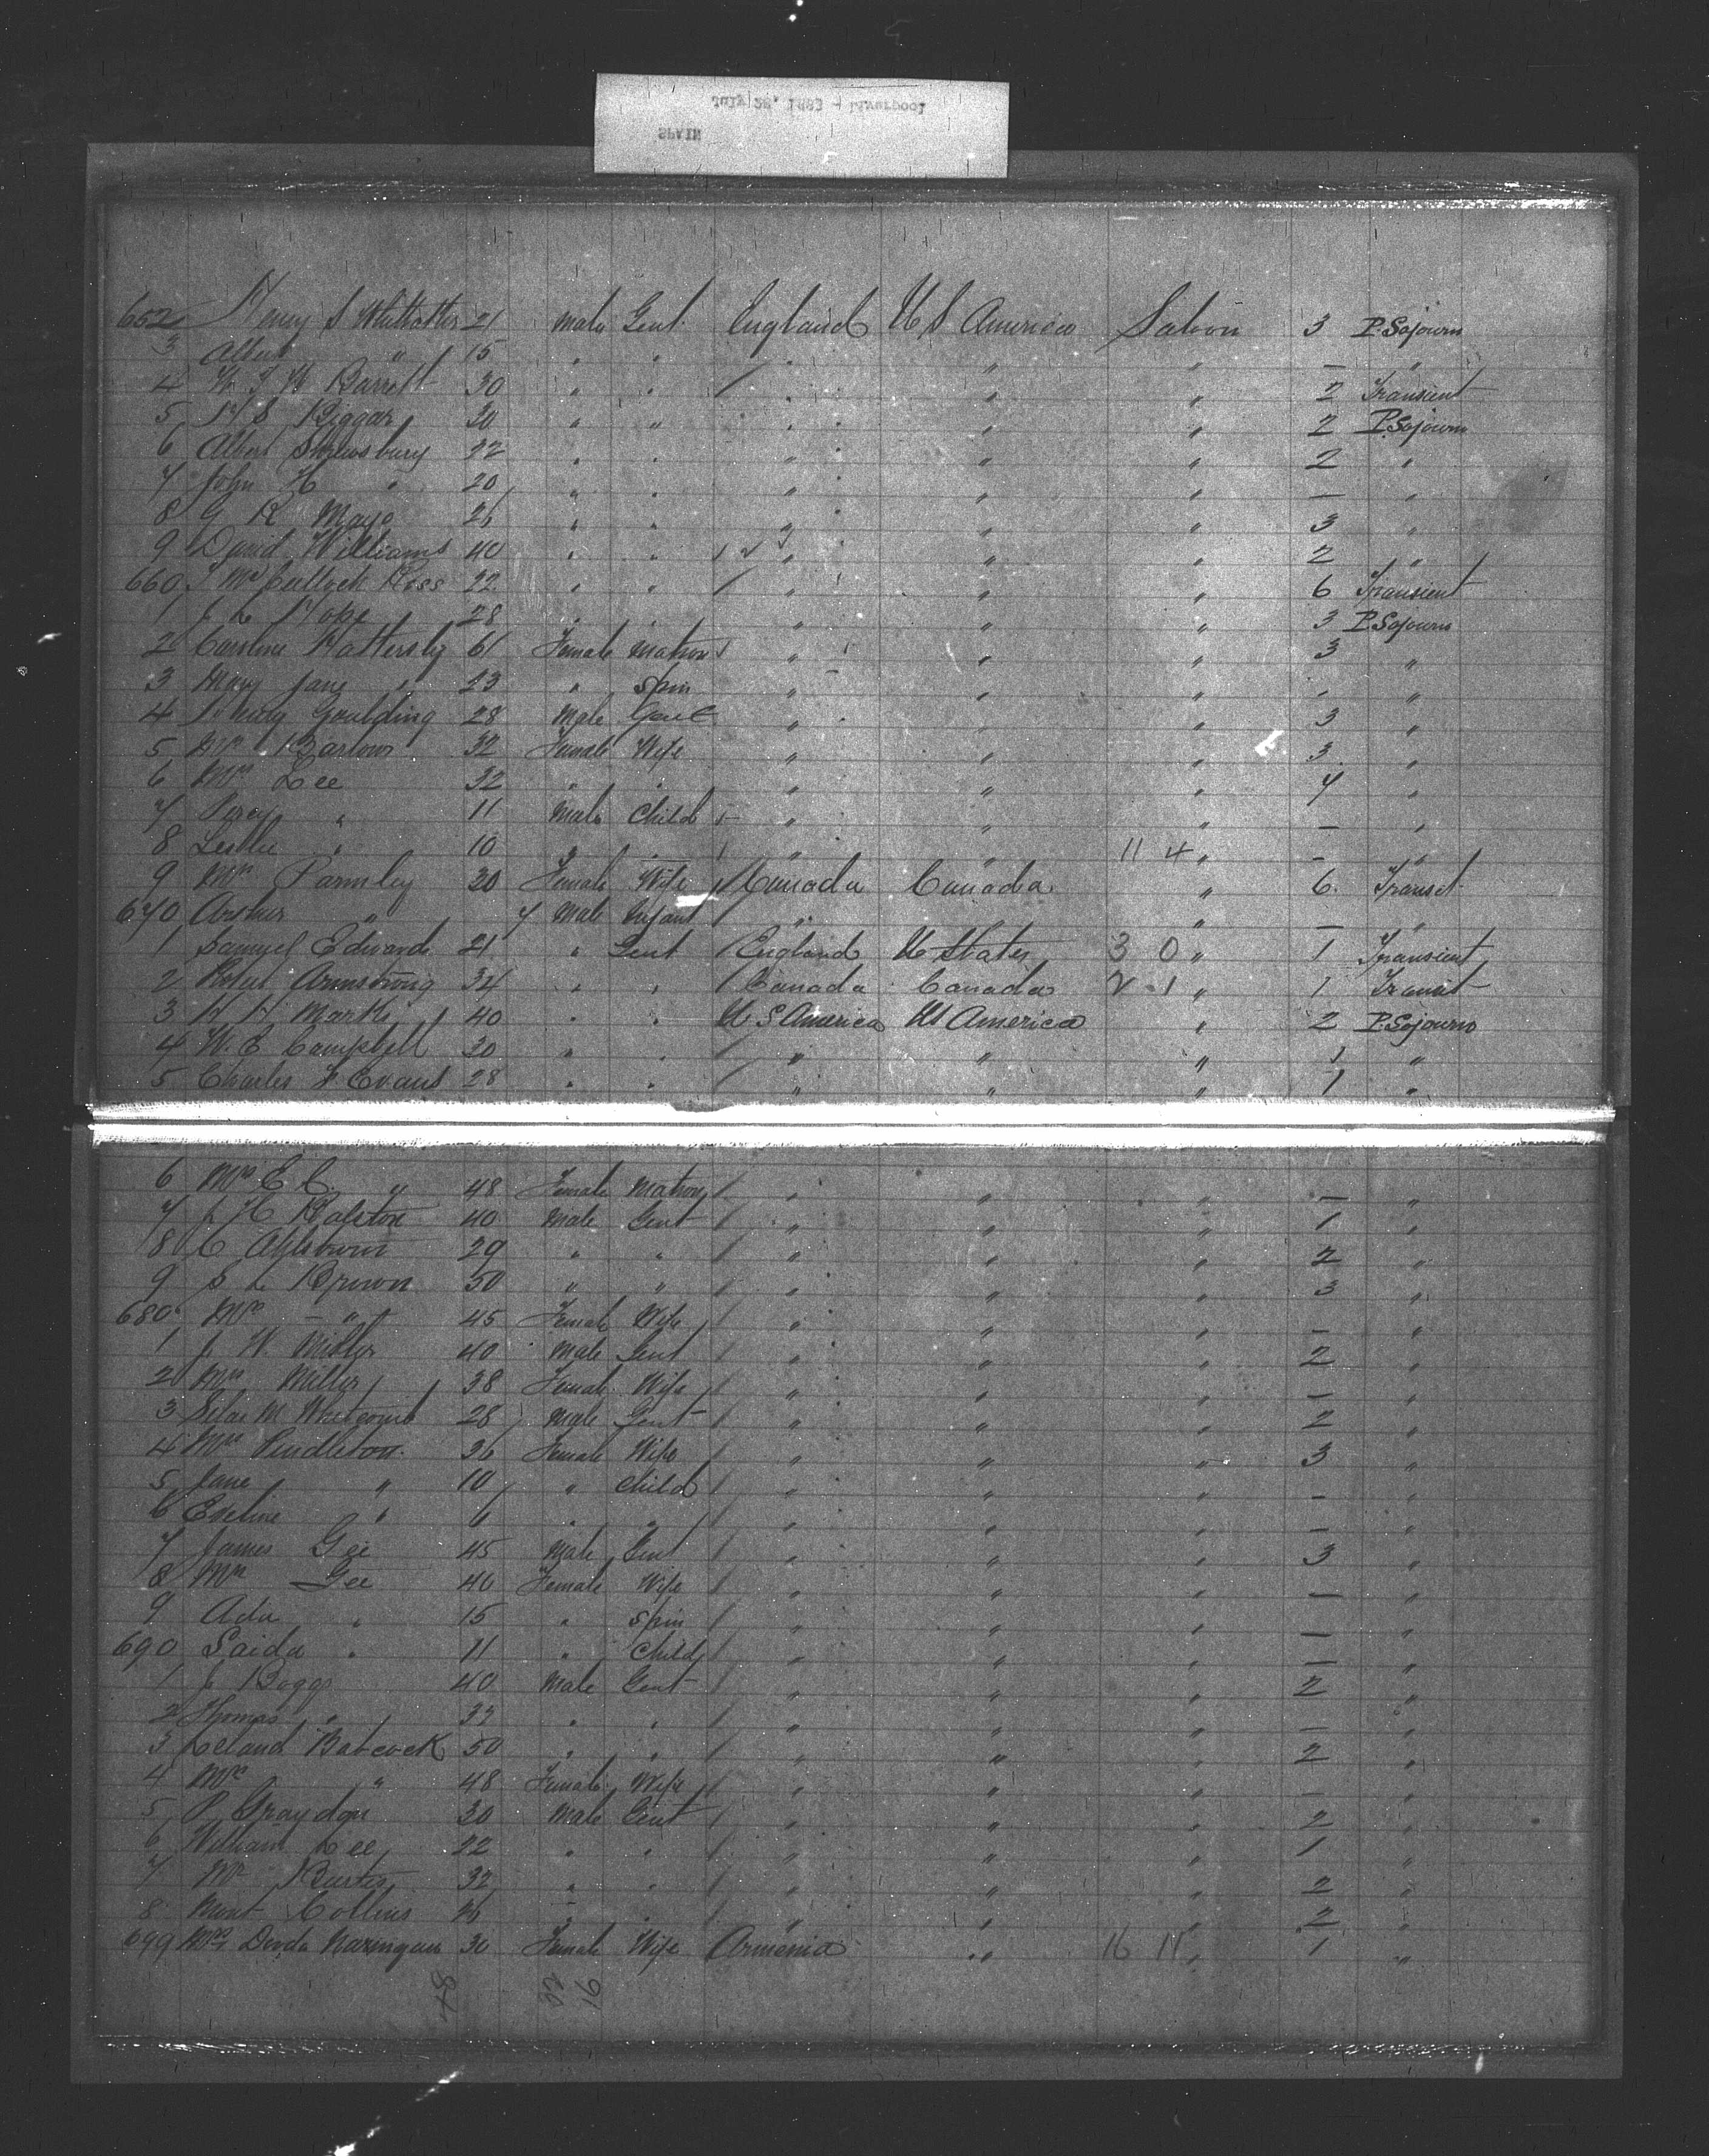 July 28, 1883 - Liverpool
SPAIN
652 Henry S Whittatter 21 Male Gent England U S America Saloon 3 P. Sojourn
3 Albert " 15 " " " " " — "
4 W. J. W Barrett 30 " " / " " " 2 Transient
5 H S Biggar 30 " " " " " 2 P. Sojourn
6 Albert Shrewsbury 22 " " " " " 2 "
7 John H " 20 " " " " " — "
8 G R Mayo 26 " " " " " 3 "
9 David Williams 40 " " " " " 2 "
660 J McCullock Ross 22 " " / " " " 6 Transient
1 J L Hope 28 " " " " " 3 P. Sojourn
2 Caroline Hattersley 61 Female Matron " " " 3 "
3 Mary Jane " 23 " Spin " " " - "
4 Goulding 28 Male Gent " " " 3 "
5 Mrs Barlow 32 Female Wife " " " 3 "
6 Mrs Lee 32 " " " " " 4 "
7 Percy " 11 Male Child " " " — "
8 Leslie " 10 " " " " 11 4 " — "
9 Mrs Parmley 30 Female Wife / Canada Canada " 6 Transet
670 Arthur " 7 Male Infant / " " — "
1 Samuel Edwards 21 " Gent / England U States 3 0 " 1 Transient
2 Armstrong 34 " " / Canada Canada 2 1 " 1 Transit
3 H H Marks 40 " " U S America US America " 2 P. Sojourn
4 W. E Campbell 30 " " / " " " 1 "
5 Charles F. Evans 28 " " / " " " 1 "
6 Mrs E C. " 48 Female Matron / " " " — "
7 J H Ralston 40 Male Gent / " " " 1 "
8 C 29 " " / " " " 2 "
9 S L Brown 50 " " / " " " 3 "
680 Mrs — " 45 Female Wife / " " " — "
1 J W. Miller 40 Male Gent / " " " 2 "
2 Mrs Miller 38 Female Wife / " " " — "
3 Silas M Whitcomb 28 Male Gent / " " " 2 "
4 Mrs Pendleton 36 Female Wife / " " " 3 "
5 Jane " 10 " Child / " " " - "
6 Eveline " 6 " " / " " " — "
7 James Gee 45 Male Gent / " " " 3 "
8 Mrs Gee 40 Female Wife / " " " — "
9 Ada " 15 " Spin / " " " — "
690 Saida " 11 " Child / " " " — "
1 J Boggs 40 Male Gent / " " " 2 "
2 Thomas " 33 " " / " " " — "
3 Leland Babcock 50 " " / " " " 2 "
4 Mrs " 48 Female Wife / " " " — "
5 P Graydon 30 Male Gent / " " " 2 "
6 William Lee 22 " " / " " " 1 "
7 Mr 32 " " / " " " 2 "
8 Mont Collins 26 " " / " " " 2 "
699 Mrs Devda Nazingan 30 Female Wife Armenia " 16 11 " 1 "